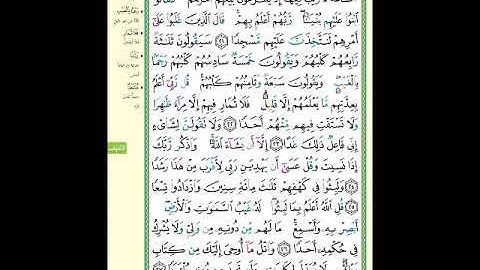 ٱبْنُوا۟ عَلَيْهِم بُنْيَـٰنًا رَّبُّهُمْ أَعْلَمُ بِهِمْ قَالَ ٱلَّذِينَ غَلَبُوا۟ عَلَىٰٓ
أَمْرِهِمْ لَنَتَّخِذَنَّ عَلَيْهِم مَّسْجِدًا ٢١ سَيَقُولُونَ ثَلَـٰثَةٌ
رَّابِعُهُمْ كَلْبُهُمْ وَيَقُولُونَ خَمْسَةٌ سَادِسُهُمْ كَلْبُهُمْ رَجْمًۢا
بِٱلْغَيْبِ وَيَقُولُونَ سَبْعَةٌ وَثَامِنُهُمْ كَلْبُهُمْ قُل رَّبِّىٓ أَعْلَمُ
بِعِدَّتِهِم مَّا يَعْلَمُهُمْ إِلَّا قَلِيلٌ فَلَا تُمَارِ فِيهِمْ إِلَّا مِرَآءً ظَـٰهِرًا
وَلَا تَسْتَفْتِ فِيهِم مِّنْهُمْ أَحَدًا ٢٢ وَلَا تَقُولَنَّ لِشَا۟ىْءٍ
إِنِّى فَاعِلٌ ذَٰلِكَ غَدًا ٢٣ إِلَّآ أَن يَشَآءَ ٱللَّهُ وَٱذْكُر رَّبَّكَ
إِذَا نَسِيتَ وَقُلْ عَسَىٰٓ أَن يَهْدِيَنِ رَبِّى لِأَقْرَبَ مِنْ هَـٰذَا رَشَدًا
٢٤ وَلَبِثُوا۟ فِى كَهْفِهِمْ ثَلَـٰثَ مِا۟ئَةٍ سِنِينَ وَٱزْدَادُوا۟ تِسْعًا
٢٥ قُلِ ٱللَّهُ أَعْلَمُ بِمَا لَبِثُوا۟ لَهُۥ غَيْبُ ٱلسَّمَـٰوَٰتِ وَٱلْأَرْضِ
أَبْصِرْ بِهِۦ وَأَسْمِعْ مَا لَهُم مِّن دُونِهِۦ مِن وَلِىٍّ وَلَا يُشْرِكُ
فِى حُكْمِهِۦٓ أَحَدًا ٢٦ وَٱتْلُ مَآ أُوحِىَ إِلَيْكَ مِن كِتَابِ